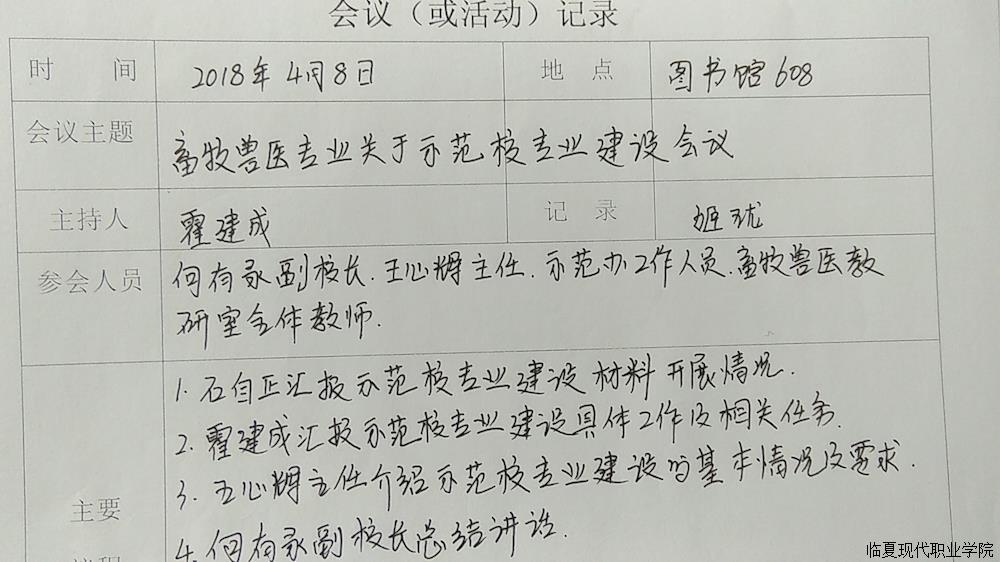 会议（或活动）记录
时 间 2018年4月8日 地 点 图书馆608
会议主题 畜牧兽医专业关于示范校专业建设会议
主持人 霍建成 记 录 姬珑
参会人员 何有录副校长.王心辉主任.示范办工作人员.畜牧兽医教
研室全体教师.
1.石自正汇报示范校专业建设材料开展情况.
2.霍建成汇报示范校专业建设具体工作及相关任务.
3.王心辉主任介绍示范校专业建设的基本情况及要求.
主要
4.何有录副校长总结讲话.
临夏现代职业学院